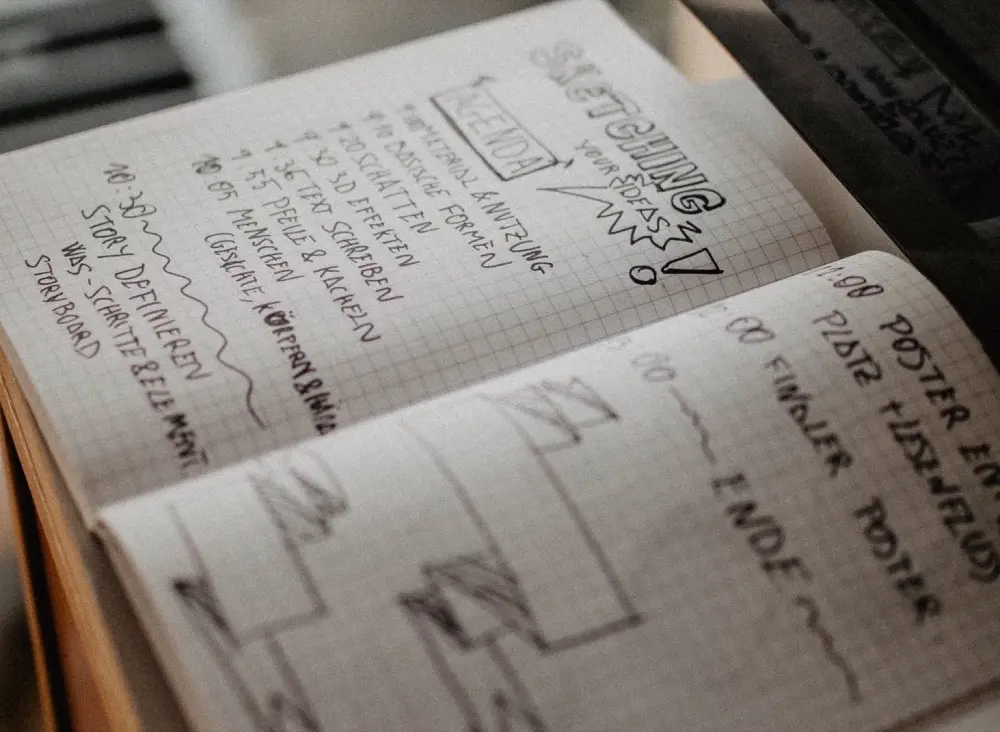 SKETCHING
YOUR IDEAS!
AGENDA
MATERIAL & NUTZUNG
9 10 BASISCHE FORMEN
9 20 SCHATTEN
9 30 3D EFFEKTEN
9:36 TEXT SCHREIBEN
9 55 PFEILE & KACHELN
10 05 MENSCHEN
(GESICHTE, KÖRPERN &
10:30
STORY DEFINIEREN
WAS - SCHRITTE & ELEMENT
STORYBOARD
11:00 POSTER
PLATZ + LESENFLUSS
00 FINALER POSTER
00 ENDE